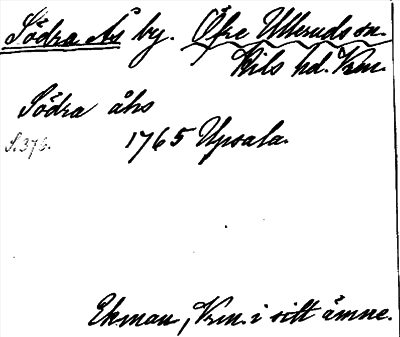 Södra Ås by. Öfre Ulleruds sn.
Kils hd. Vrm.
Södra åhs
S. 376. 1765 Upsala.
Ekman, Vrm. i sitt ämne.